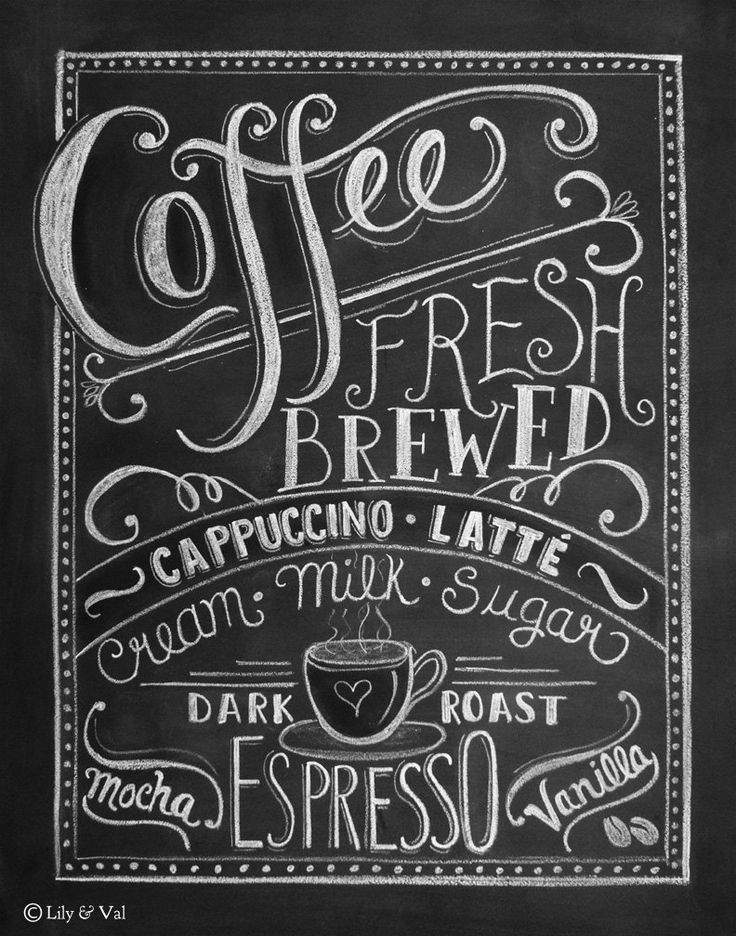 Coffee
FRESH
BREWED
CAPPUCCINO · LATTÉ
Cream · milk · Sugar
DARK ROAST
ESPRESSO
Mocha
Vanilla
© Lily & Val